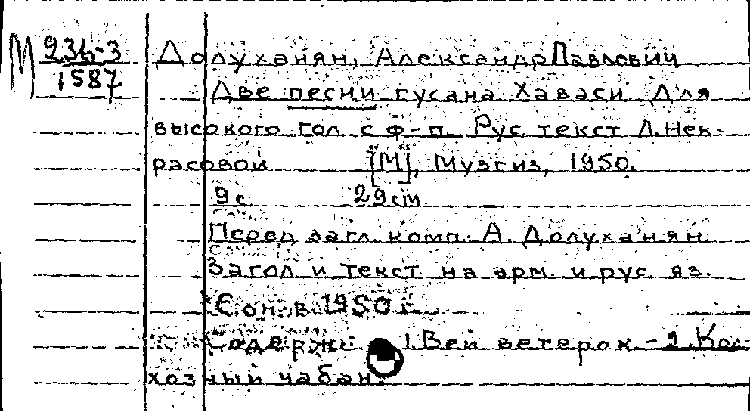 М 236-3 Долуханян, Александр Павлович
1587 Две песни гусана Хаваси. Для
высокого гол. с ф-п. Рус. текст Л. Нек-
расовой [М], Музгиз, 1950.
9 с 29 см
Перед загл. комп. А. Долуханян
Загол и текст на арм. и рус. яз.
Соч. в 1950 г.
Содерж: 1. Вей ветерок. - 2. Кол-
хозный чабан.